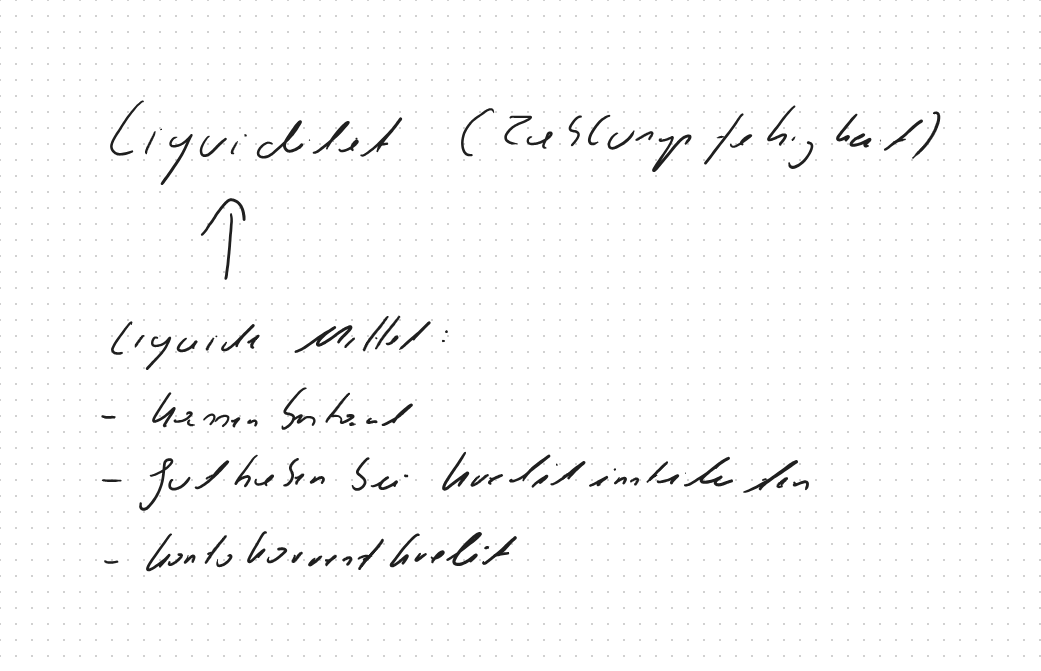 Liquidität (Zahlungsfähigkeit)
↑
Liquide Mittel:
- Kassenbestand
- Guthaben bei Kreditinstituten
- Kontokorrentkredit